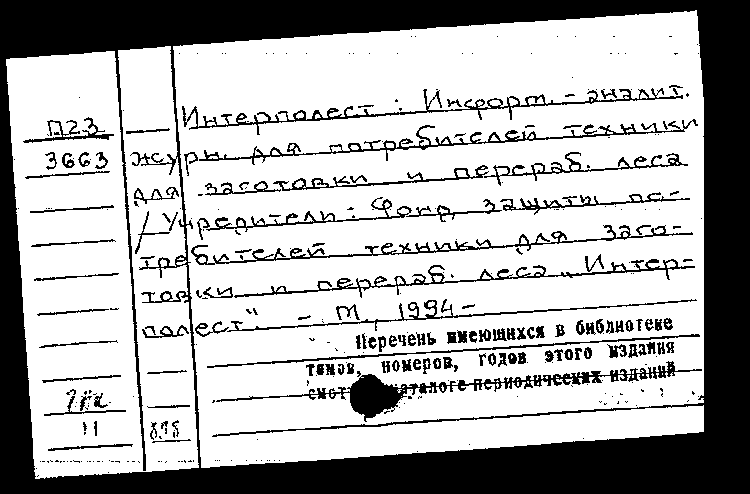 Интерполест : Информ. - аналит.
П23
3663 журн. для потребителей техники
для заготовки и перераб. леса
/ Учредители : Фонд защиты по-
требителей техники для заго-
товки и перераб. леса „Интер-
полест". - М., 1994 -
Перечень имеющихся в библиотеке
томов, номеров, годов этого издания
каталоге периодических изданий
11